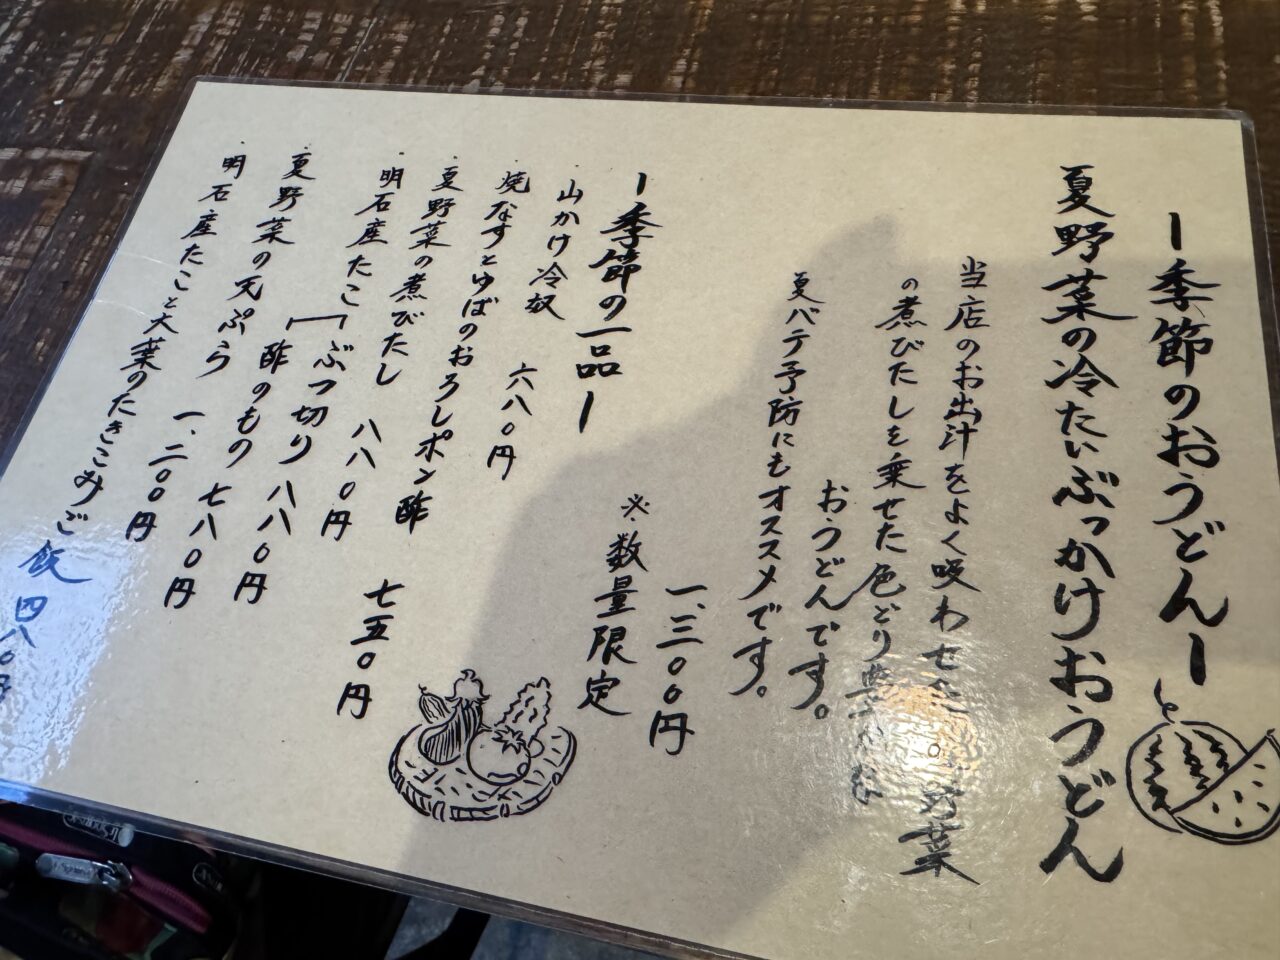 ー季節のおうどんー
夏野菜の冷たいぶっかけおうどん
当店のお出汁をよく吸わせた夏野菜
の煮びたしを乗せた色どり豊かな
おうどんです。
夏バテ予防にもオススメです。
一、三〇〇円
※数量限定
ー季節の一品ー
・山かけ冷奴 六八〇円
・焼なすとゆばのおろしポン酢 七五〇円
・夏野菜の煮びたし 八八〇円
・明石産たこ ぶつ切り 八八〇円
酢のもの 七八〇円
・夏野菜の天ぷら 一、二〇〇円
・明石産たこと大葉のたきこみご飯 四八〇円